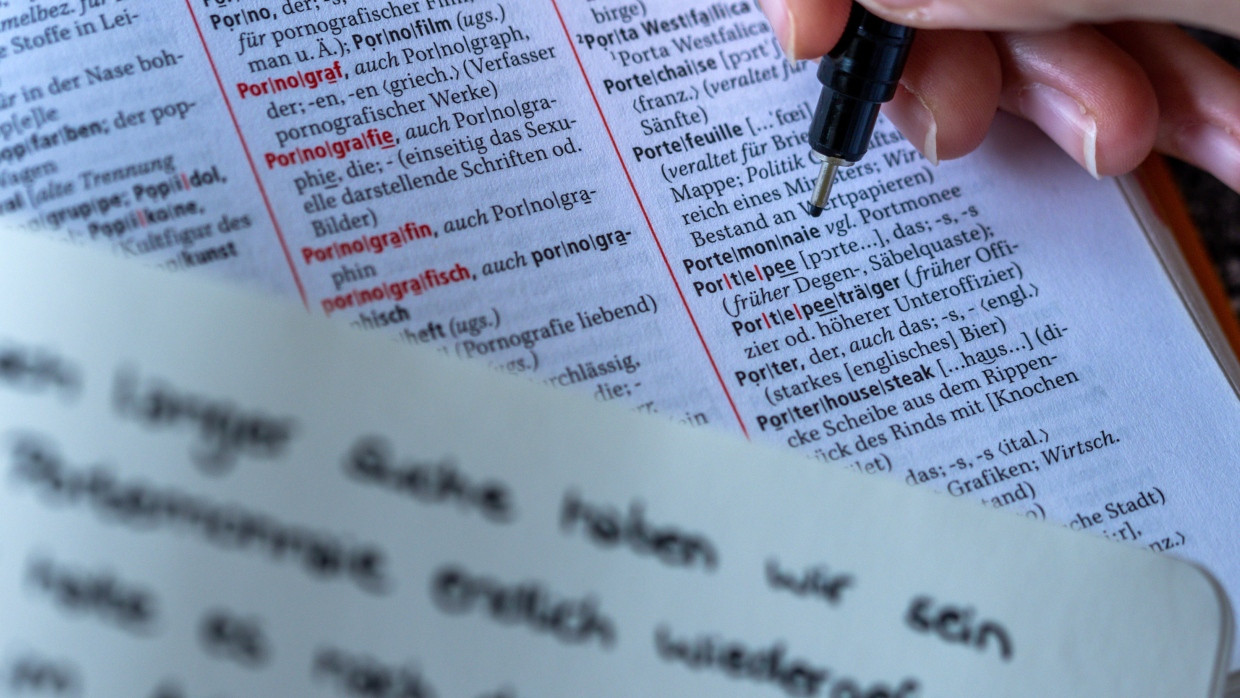 melbez. für
e Stoffe in Lei-
ür in der Nase boh-
p[e]le
pop|far|ben; der pop-
[alte Trennung
Pop|i|dol,
Pop|i|ko|ne,
Kultfigur des
kunst
Por|no, der; -s, -s
für pornografischer Film,
man u. Ä.); Por|no|film (ugs.)
Por|no|graf, auch Por|no|graph,
der; -en, -en ⟨griech.⟩ (Verfasser
pornografischer Werke)
Por|no|gra|fie, auch Por|no|gra-
phie, die; - (einseitig das Sexu-
elle darstellende Schriften od.
Bilder)
Por|no|gra|fin, auch Por|no|gra-
phin
por|no|gra|fisch, auch por|no|gra-
phisch
heft (ugs.)
(Pornografie liebend)
chlässig,
die; -
in
birge)
²Por|ta West|fa|li|ca
¹Porta Westfalica
Porte|chai|se [pɔrt'
⟨franz.⟩ (veraltet für
Sänfte)
Porte|feuille [...'fœj]
(veraltet für Brie
Mappe; Politik
reich eines Ministers; Wir
Bestand an Wertpapieren)
Porte|mon|naie vgl. Portmonee
Por|t|e|pee [pɔrte...], das; -s, -s
(früher Degen-, Säbelquaste);
Por|t|e|pee|trä|ger (früher Offi-
zier od. höherer Unteroffizier)
Por|ter, der, auch das; -s, - ⟨engl.⟩
(starkes [englisches] Bier)
Por|ter|house|steak [...haus...] (di-
cke Scheibe aus dem Rippen-
ück des Rinds mit [Knochen
let)
das; -s, -s ⟨ital.⟩
Grafiken; Wirtsch.
tand)
che Stadt)
nz.⟩
langer Suche haben wir sein
Portemonnaie endlich wiederge
hatte es nach